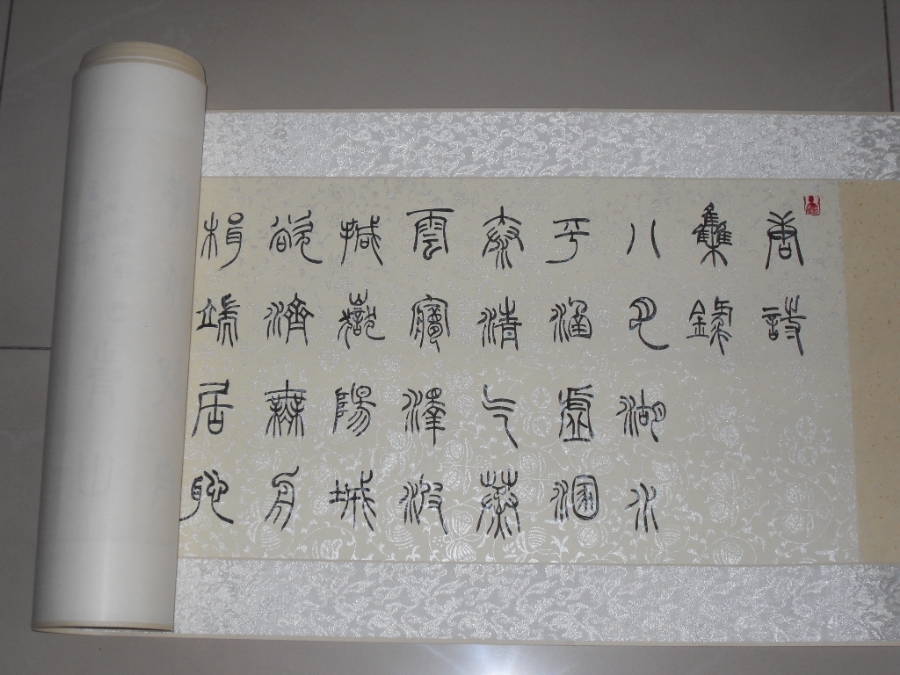 唐詩
集錄
八月湖水
平涵虛溷
泰清气蒸
雲夢澤波
撼嶽陽城
欲濟無舟
楫端居恥